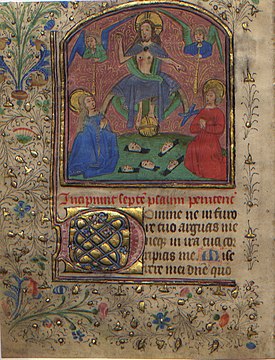 Incipiunt septē psalmi penitenc
Domine ne in furo
re tuo arguas me
neq̄ in ira tua cor
ripias me. Mise
rere mei dn̄e quo